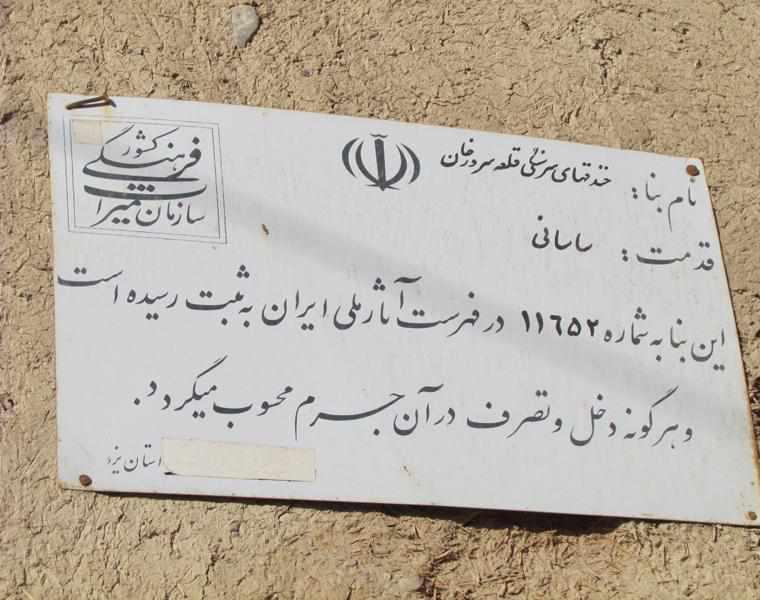 نام بنا: خندقهای قلعه
قدمت: ساسانی
این بنا به شماره ۱۱٦۵۲ در فهرست آثار ملی ایران به ثبت رسیده است
و هرگونه دخل و تصرف در آن جرم محسوب میگردد.
سازمان میراث فرهنگی کشور
استان یزد